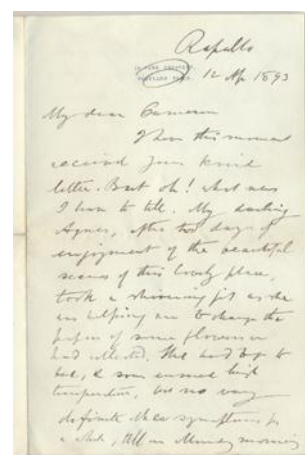 Rapallo
12 Ap 1893
My dear Cameron
I have this moment
received your kind
letter. But oh! what news
I have to tell. My darling
Agnes, after two days of
enjoyment of the beautiful
scenes of this lovely place,
took a shivering fit as she
was helping me to change the
papers of some flowers we
had collected. She had to go to
bed, & soon ensued high
temperature, but no very
definite other symptoms for
a while, till on Monday morning